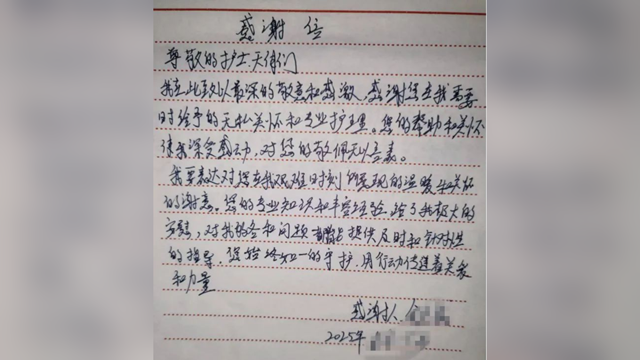 感谢信
尊敬的护士天使们
我在此致以最深的敬意和感激，感谢您在我需要
时给予的无私关怀和专业护理。您的帮助和关怀
使我深受感动，对您的敬佩无以言表。
我要表达对您在我艰难时刻所展现的温暖和关怀
的谢意。您的专业知识和丰富经验给了我极大的
安慰，对我的和问题都能提供及时和针对性
的指导。您始终如一的守护，用行动传递着关爱
和力量
感谢人
2025年